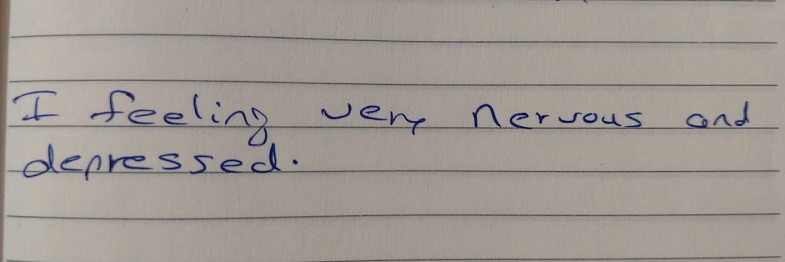 I feeling very nervous and
depressed.